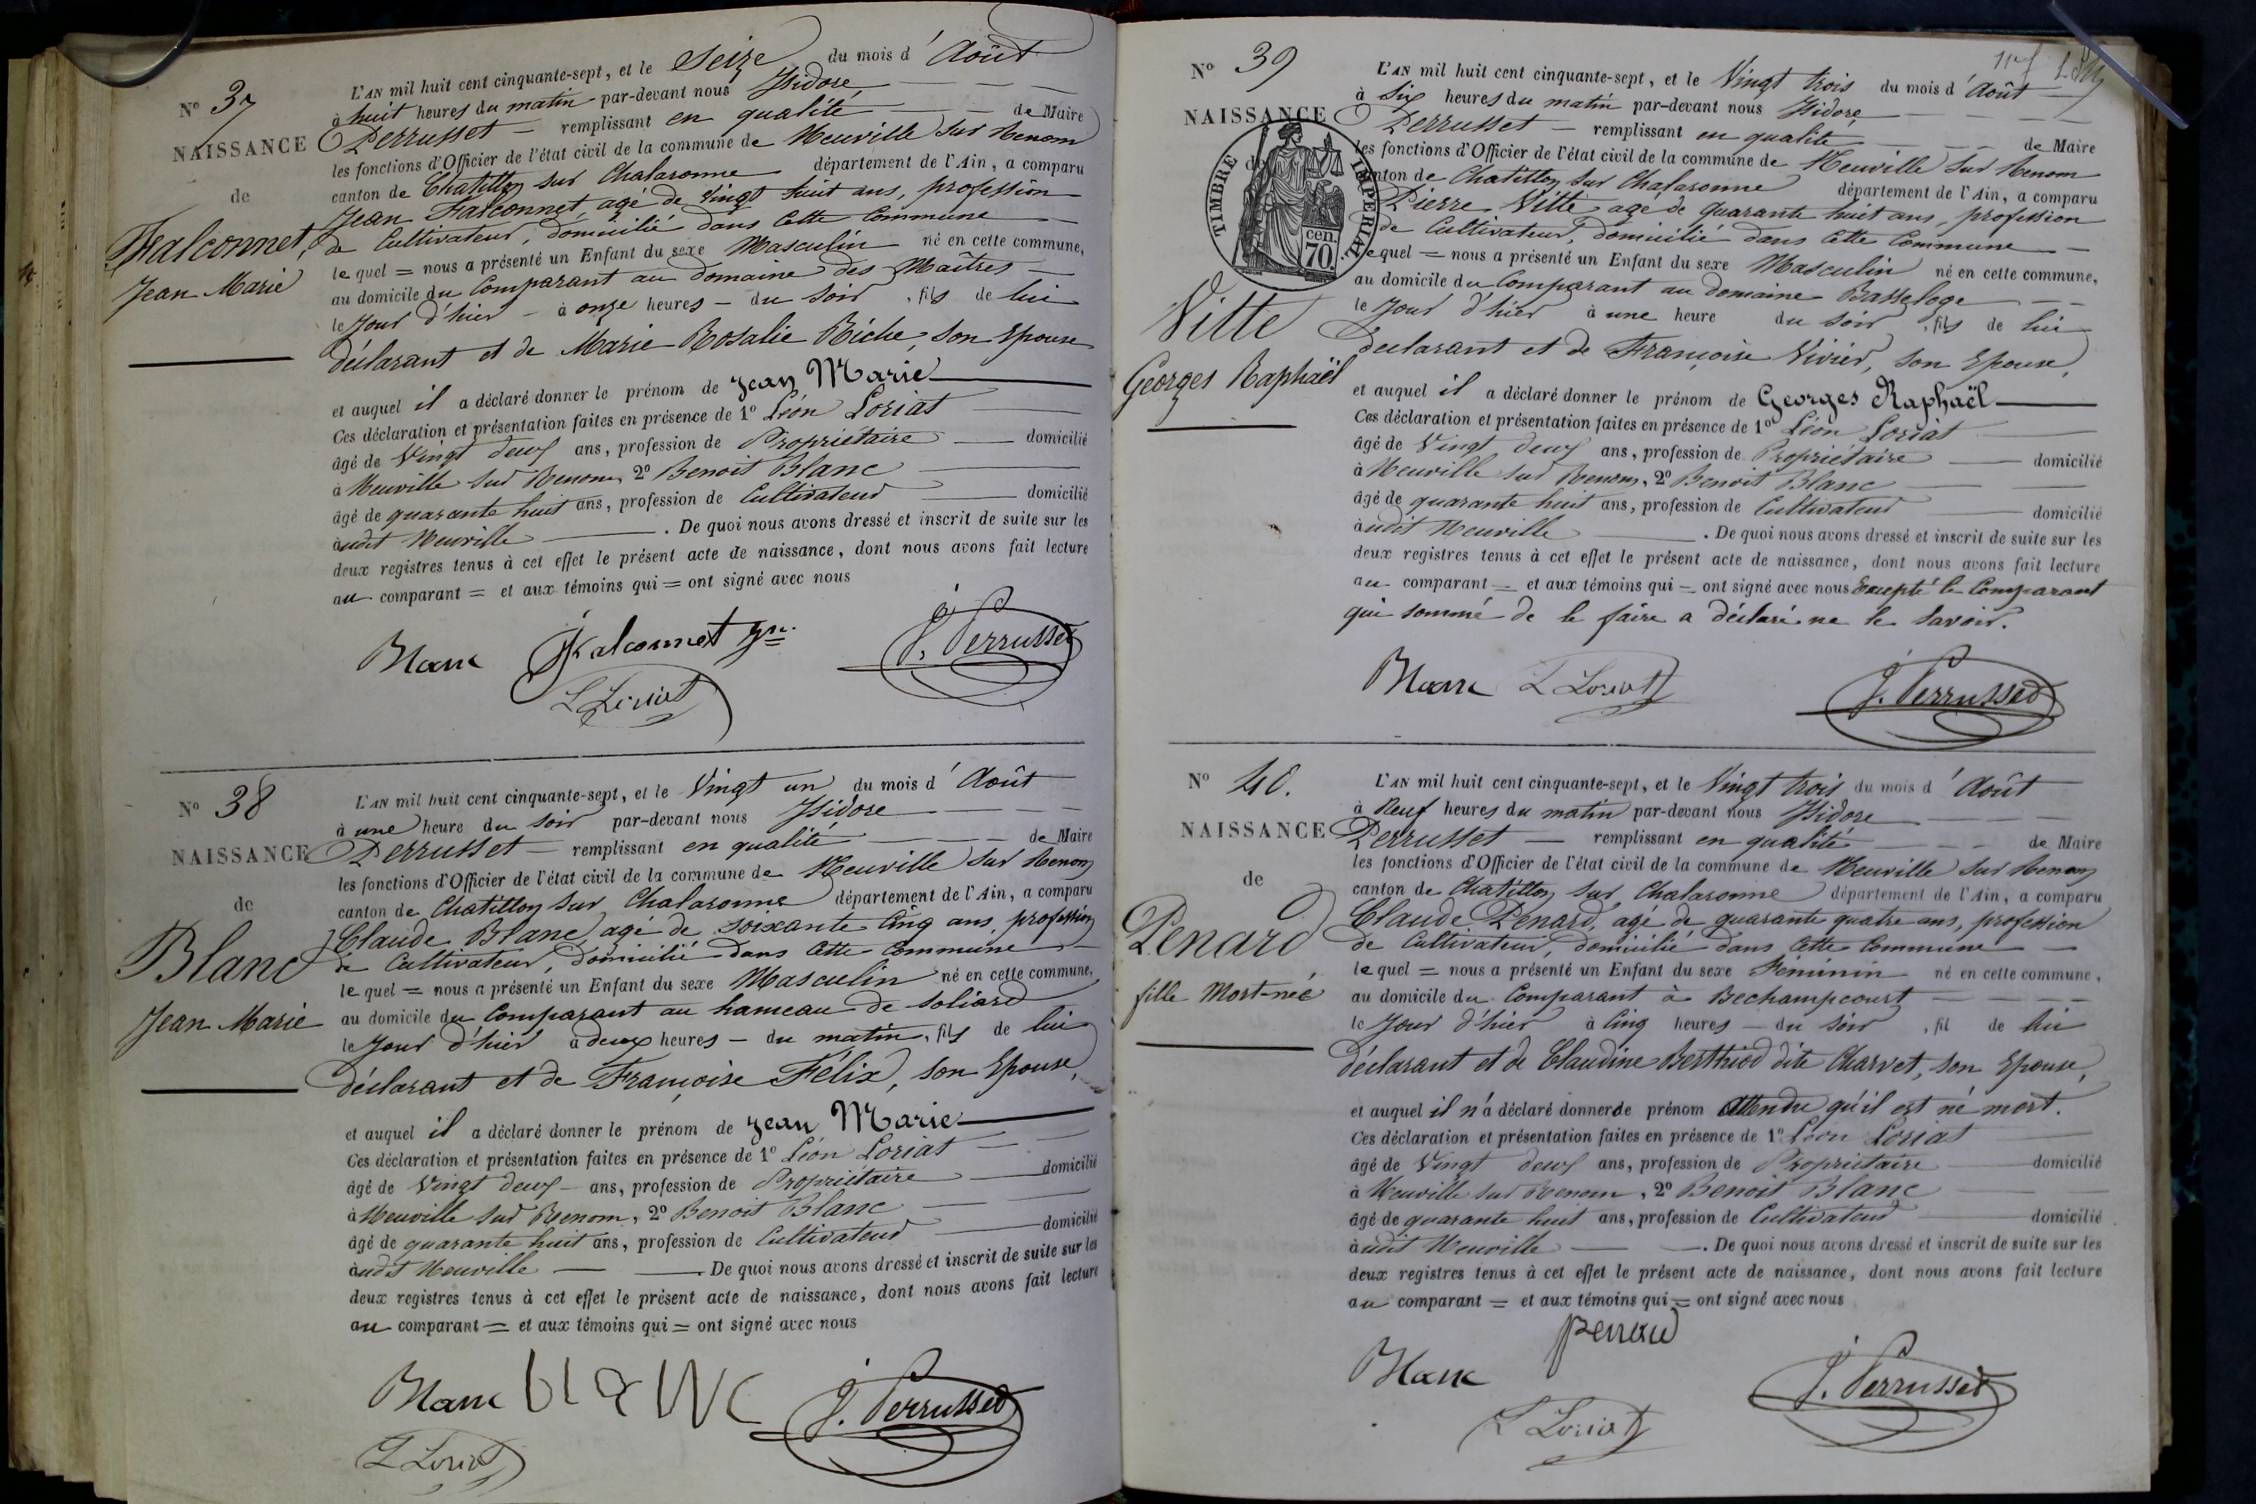 N° 37
NAISSANCE
de
Falconnet,
Jean Marie
L'AN mil huit cent cinquante-sept, et le Seize du mois d'Août
à huit heures du matin par-devant nous Isidore
Perrusset remplissant en qualité de Maire
les fonctions d'Officier de l'état civil de la commune de Neuville sur Renom
canton de Chatillon sur Chalaronne département de l'Ain, a comparu
Jean Falconnet, agé de vingt huit ans, profession
de Cultivateur, domicilié dans cette Commune
lequel = nous a présenté un Enfant du sexe Masculin né en cette commune,
au domicile du Comparant au domaine des Maîtres
le Jour d'hier à onze heures du soir, fils de lui
déclarant et de Marie Rosalie Biche, son Epouse
et auquel il a déclaré donner le prénom de Jean Marie
Ces déclaration et présentation faites en présence de 1° Léon Loriat
âgé de Vingt deux ans, profession de Propriétaire domicilié
à Neuville sur Renom, 2° Benoit Blanc
âgé de quarante huit ans, profession de Cultivateur domicilié
audit Neuville . De quoi nous avons dressé et inscrit de suite sur les
deux registres tenus à cet effet le présent acte de naissance, dont nous avons fait lecture
au comparant = et aux témoins qui = ont signé avec nous
Blanc Falconnet Jn. J. Perrusset
L Loriat
N° 38
NAISSANCE
de
Blanc
Jean Marie
L'AN mil huit cent cinquante-sept, et le Vingt un du mois d'Août
à une heure du soir par-devant nous Isidore
Perrusset remplissant en qualité de Maire
les fonctions d'Officier de l'état civil de la commune de Neuville sur Renom
canton de Chatillon sur Chalaronne département de l'Ain, a comparu
Claude Blanc, agé de soixante cinq ans, profession
de Cultivateur, domicilié dans cette Commune
lequel = nous a présenté un Enfant du sexe Masculin né en cette commune,
au domicile du Comparant au hameau de Soliard
le Jour d'hier à deux heures du matin, fils de lui
déclarant et de Françoise Félix, son Epouse,
et auquel il a déclaré donner le prénom de Jean Marie
Ces déclaration et présentation faites en présence de 1° Léon Loriat
âgé de Vingt deux ans, profession de Propriétaire domicilié
à Neuville sur Renom, 2° Benoit Blanc
âgé de quarante huit ans, profession de Cultivateur domicilié
audit Neuville . De quoi nous avons dressé et inscrit de suite sur les
deux registres tenus à cet effet le présent acte de naissance, dont nous avons fait lecture
au comparant = et aux témoins qui = ont signé avec nous
Blanc blanc J. Perrusset
L Loriat
N° 39
NAISSANCE
de
TIMBRE IMPERIAL
70 cen.
Vitte
Georges Raphaël
L'AN mil huit cent cinquante-sept, et le Vingt trois du mois d'Août
à Six heures du matin par-devant nous Isidore
Perrusset remplissant en qualité de Maire
les fonctions d'Officier de l'état civil de la commune de Neuville sur Renom
canton de Chatillon sur Chalaronne département de l'Ain, a comparu
Pierre Vitte, agé de quarante huit ans, profession
de Cultivateur, domicilié dans cette Commune
lequel = nous a présenté un Enfant du sexe Masculin né en cette commune,
au domicile du Comparant au domaine Basseloge
le Jour d'hier à une heure du soir, fils de lui
déclarant et de Françoise Vivier, son Epouse,
et auquel il a déclaré donner le prénom de Georges Raphaël
Ces déclaration et présentation faites en présence de 1° Léon Loriat
âgé de Vingt deux ans, profession de Propriétaire domicilié
à Neuville sur Renom, 2° Benoit Blanc
âgé de quarante huit ans, profession de Cultivateur domicilié
audit Neuville . De quoi nous avons dressé et inscrit de suite sur les
deux registres tenus à cet effet le présent acte de naissance, dont nous avons fait lecture
au comparant = et aux témoins qui = ont signé avec nous Excepté le Comparant
qui sommé de le faire a déclaré ne le savoir.
Blanc L Loriat J. Perrusset
N° 40.
NAISSANCE
de
Penard
fille Mort-née
L'AN mil huit cent cinquante-sept, et le Vingt trois du mois d'Août
à Neuf heures du matin par-devant nous Isidore
Perrusset remplissant en qualité de Maire
les fonctions d'Officier de l'état civil de la commune de Neuville sur Renom
canton de Chatillon sur Chalaronne département de l'Ain, a comparu
Claude Penard, agé de quarante quatre ans, profession
de Cultivateur, domicilié dans cette Commune
lequel = nous a présenté un Enfant du sexe Féminin né en cette commune,
au domicile du Comparant à Bechampcourt
le Jour d'hier à Cinq heures du soir, fil de lui
déclarant et de Claudine Berthiod dite Charvet, son Epouse,
et auquel il n'a déclaré donner de prénom Attendu qu'il est né mort.
Ces déclaration et présentation faites en présence de 1° Léon Loriat
âgé de Vingt deux ans, profession de Propriétaire domicilié
à Neuville sur Renom, 2° Benoit Blanc
âgé de quarante huit ans, profession de Cultivateur domicilié
audit Neuville . De quoi nous avons dressé et inscrit de suite sur les
deux registres tenus à cet effet le présent acte de naissance, dont nous avons fait lecture
au comparant = et aux témoins qui = ont signé avec nous
penard
Blanc J. Perrusset
L Loriat